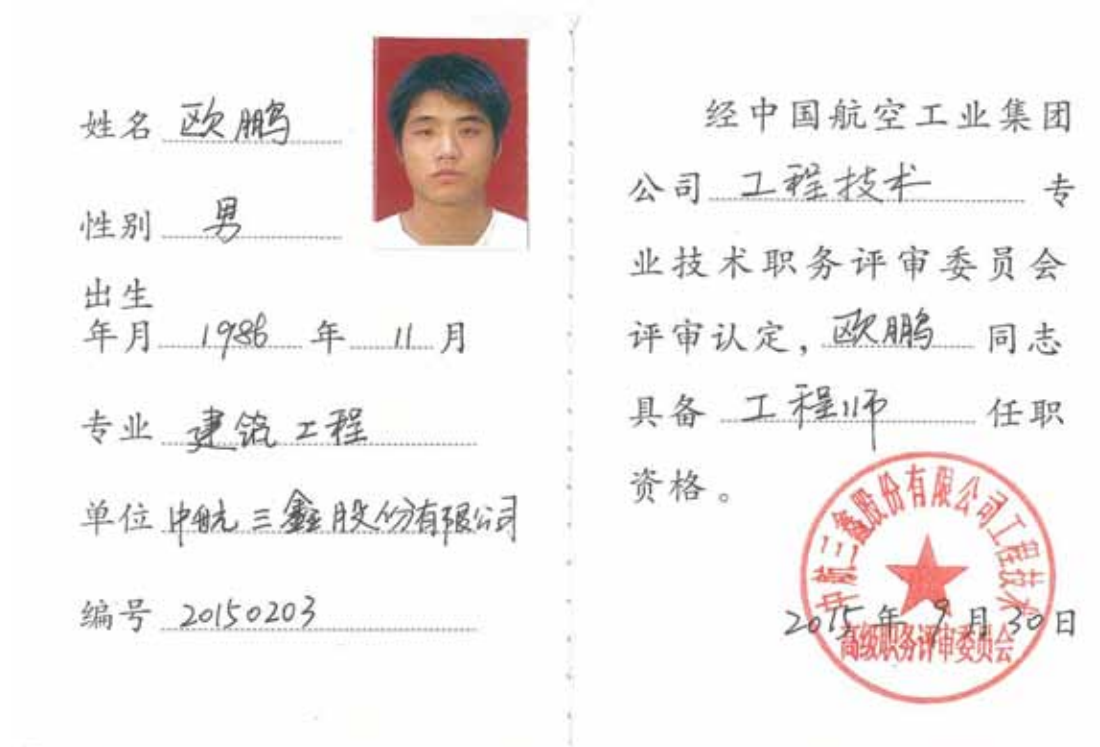 姓名 欧鹏
性别 男
出生
年月 1986 年 11 月
专业 建筑工程
单位 中航三鑫股份有限公司
编号 20150203
经中国航空工业集团
公司 工程技术 专
业技术职务评审委员会
评审认定，欧鹏 同志
具备 工程师 任职
资格。
中航三鑫股份有限公司工程技术
2015年 9月30日
高级职务评审委员会